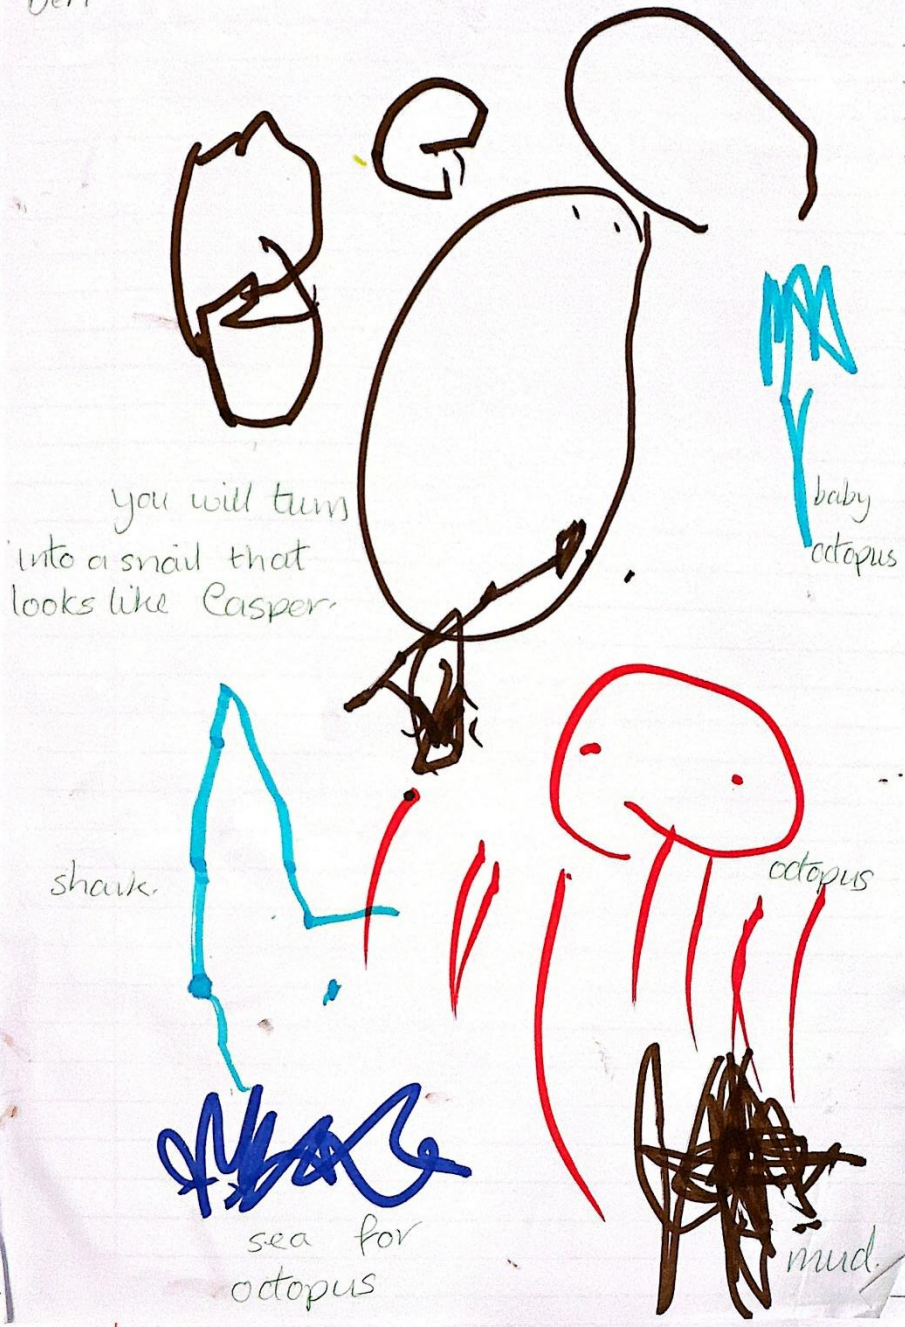 you will turn
into a snail that
looks like Casper.
baby
octopus
shark.
octopus
sea for
octopus
mud.